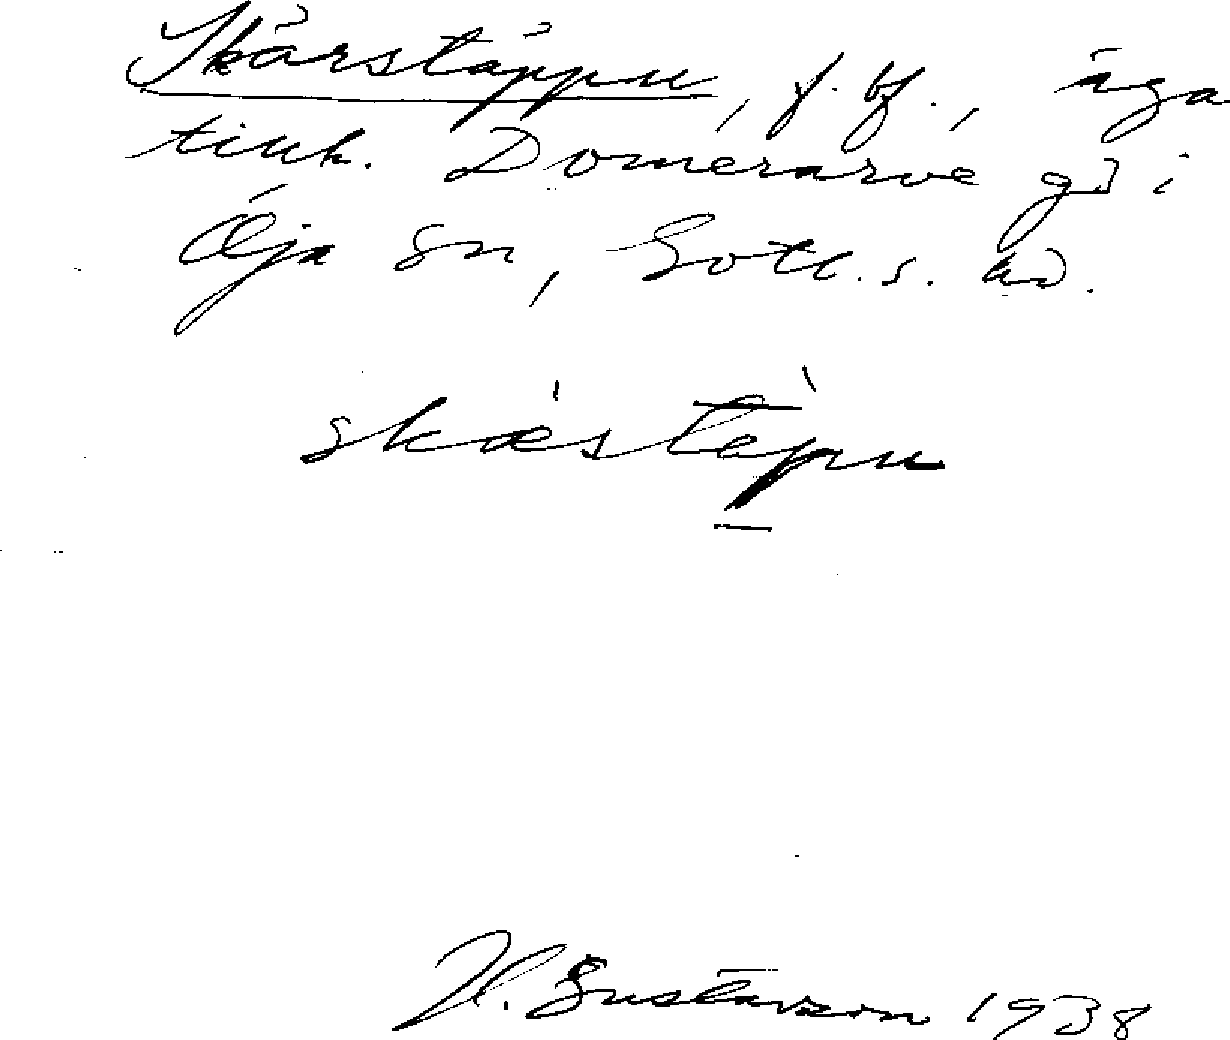 Skärstäppu, f. bf., äga
tillh. Domerarve gd i
Öja sn, Gotl. s. hd.
skæstepu
H. Gustavson 1938